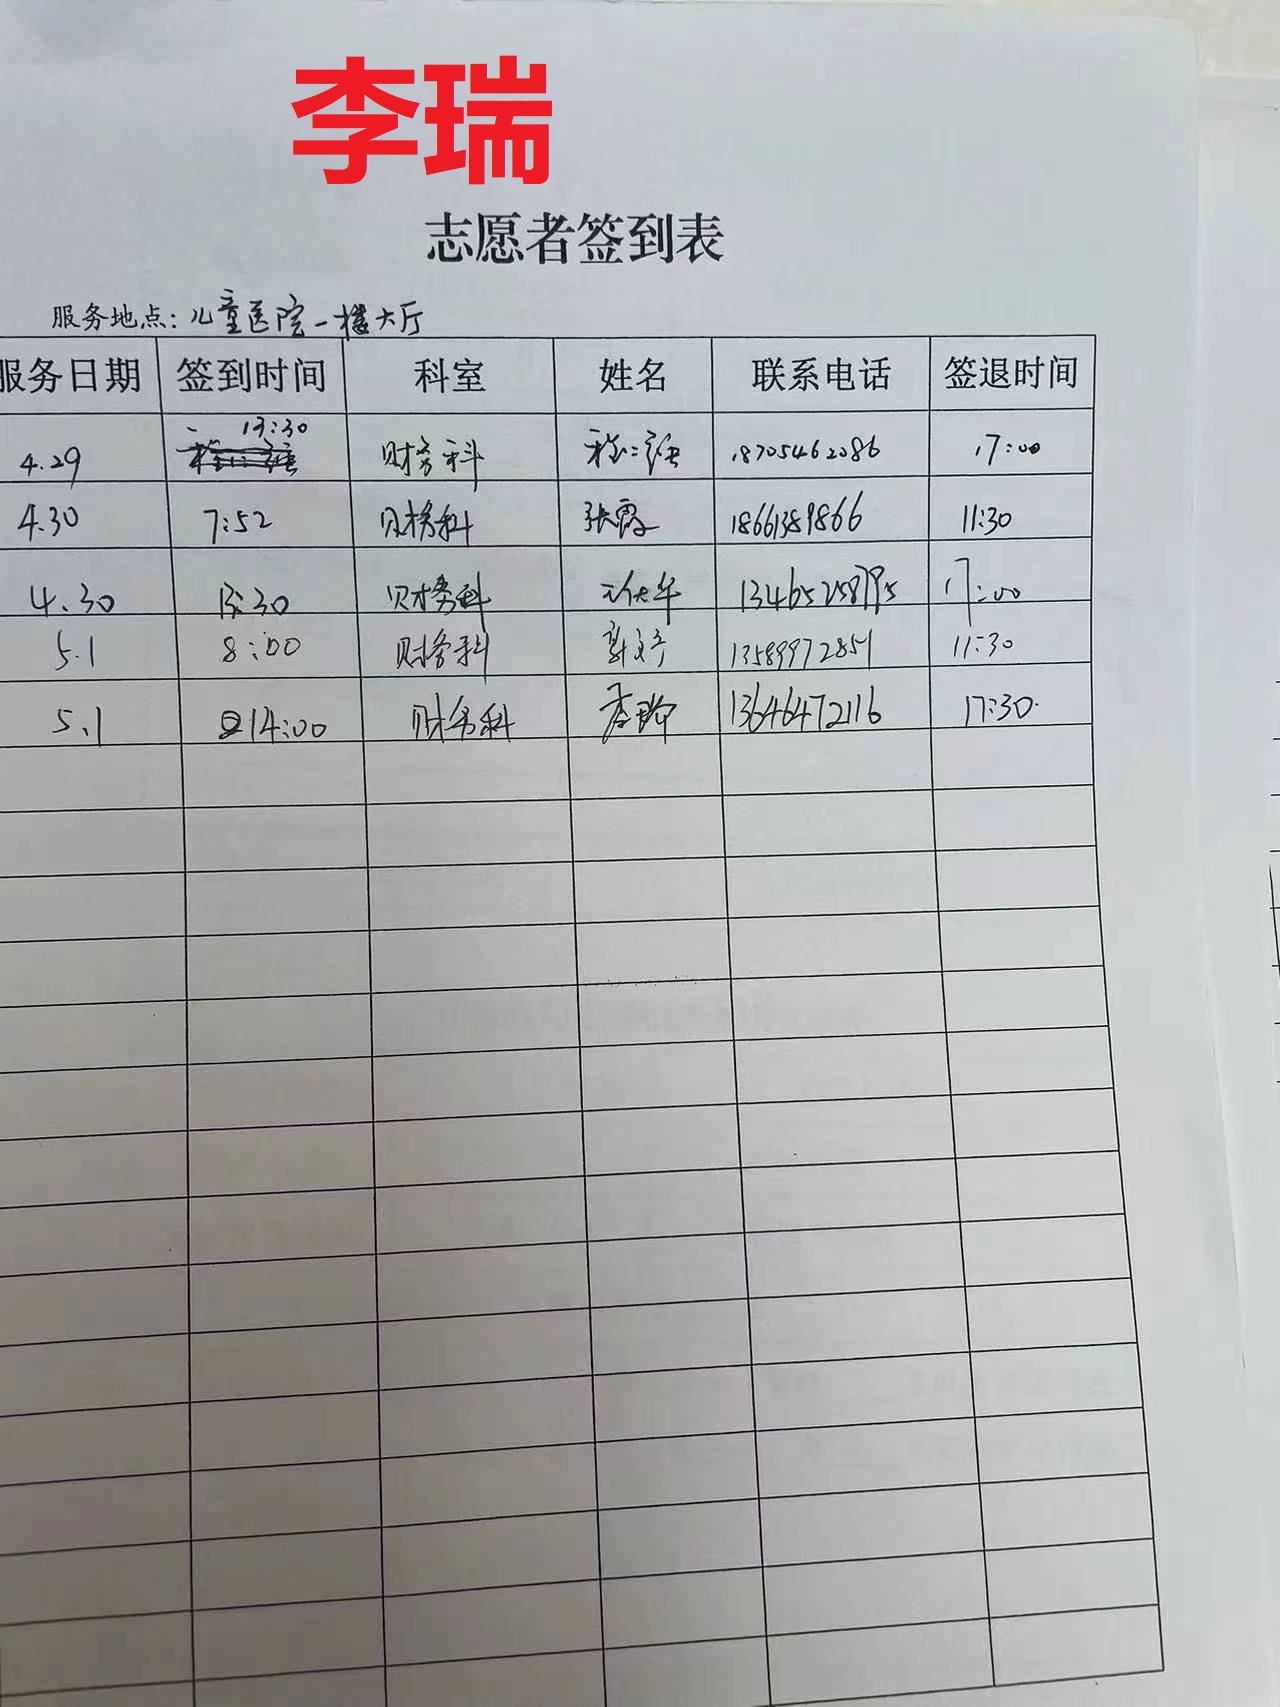 李瑞
志愿者签到表
服务地点: 儿童医院一楼大厅
服务日期 签到时间 科室 姓名 联系电话 签退时间
4.29 13:30 财务科 18705462086 17:00
4.30 7:52 财务科 张霞 18661389866 11:30
4.30 13:30 财务科 17:00
5.1 8:00 财务科 11:30
5.1 14:00 财务科 李瑞 13646472116 17:30